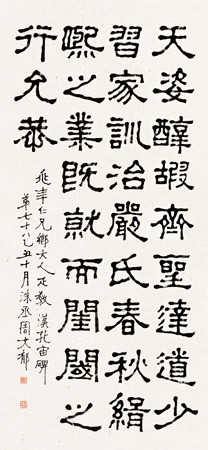 天姿醇嘏齊聖達道少
習家訓治嚴氏春秋緝
熙之業既就而閨閫之
行允恭
仁兄鄉大人正教 漢孔宙碑
第七十八 丑十月 丞周文郁